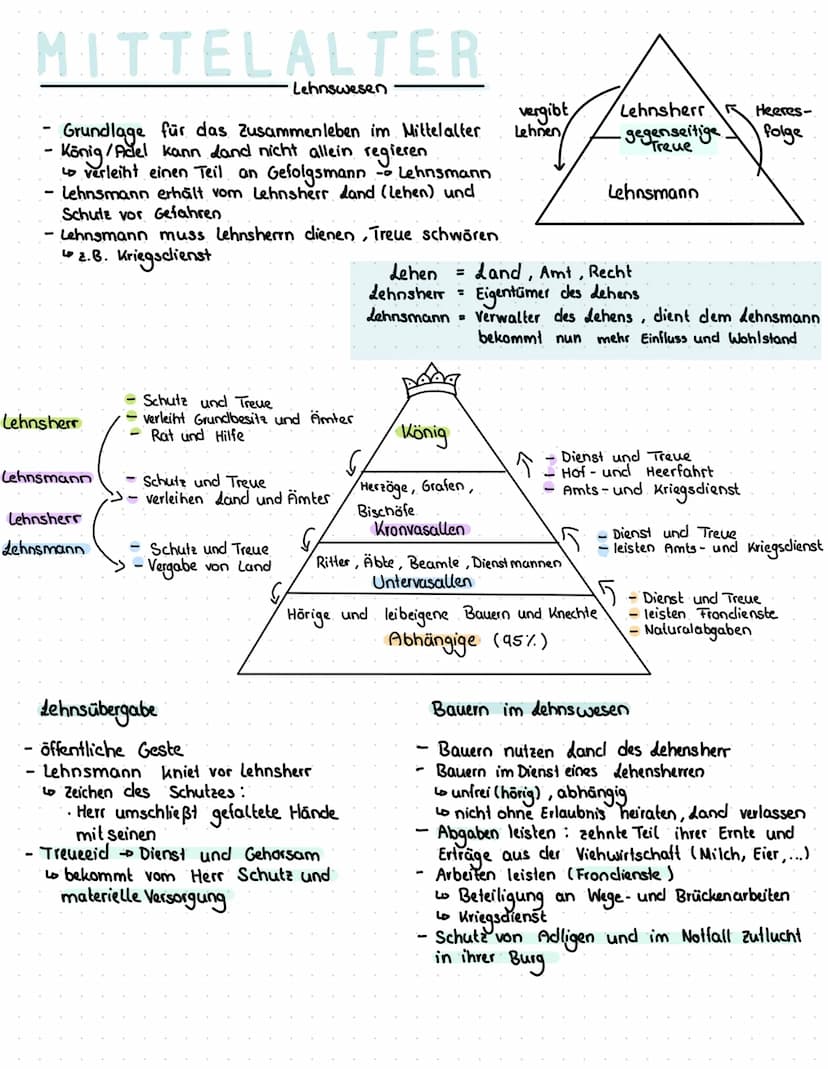 MITTELALTER
Lehnswesen
- Grundlage für das Zusammenleben im Mittelalter
- König/Adel kann Land nicht allein regieren
↳ verleiht einen Teil an Gefolgsmann → Lehnsmann
- Lehnsmann erhält vom Lehnsherr Land (Lehen) und
Schutz vor Gefahren
- Lehnsmann muss Lehnsherrn dienen, Treue schwören
↳ z.B. Kriegsdienst
vergibt
Lehnen
Lehnsherr
gegenseitige
Treue
Lehnsmann
Heeres-
folge
Lehen = Land, Amt, Recht
Lehnsherr = Eigentümer des Lehens
Lehnsmann = Verwalter des Lehens, dient dem Lehnsmann
bekommt nun mehr Einfluss und Wohlstand
Lehnsherr
- Schutz und Treue
- verleiht Grundbesitz und Ämter
- Rat und Hilfe
Lehnsmann
- Schutz und Treue
- verleihen Land und Ämter
Lehnsherr
Lehnsmann
- Schutz und Treue
- Vergabe von Land
König
Herzöge, Grafen,
Bischöfe
Kronvasallen
Ritter, Äbte, Beamte, Dienstmannen
Untervasallen
Hörige und leibeigene Bauern und Knechte
Abhängige (95%)
- Dienst und Treue
- Hof- und Heerfahrt
- Amts- und Kriegsdienst
- Dienst und Treue
- leisten Amts- und Kriegsdienst
- Dienst und Treue
- leisten Frondienste
- Naturalabgaben
Lehnsübergabe
- öffentliche Geste
- Lehnsmann kniet vor Lehnsherr
↳ Zeichen des Schutzes:
· Herr umschließt gefaltete Hände
mit seinen
- Treueeid → Dienst und Gehorsam
↳ bekommt vom Herr Schutz und
materielle Versorgung
Bauern im Lehnswesen
- Bauern nutzen Land des Lehensherr
- Bauern im Dienst eines Lehensherren
↳ unfrei (hörig), abhängig
↳ nicht ohne Erlaubnis heiraten, Land verlassen
- Abgaben leisten: zehnte Teil ihrer Ernte und
Erträge aus der Viehwirtschaft (Milch, Eier,...)
- Arbeiten leisten (Frondienste)
↳ Beteiligung an Wege- und Brückenarbeiten
↳ Kriegsdienst
- Schutz von Adligen und im Notfall Zuflucht
in ihrer Burg